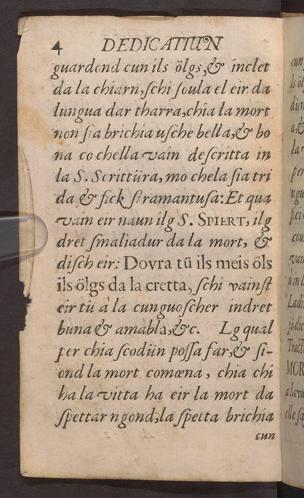 4 DEDICATIUN
guardond cun ils ölgs,& inclet
da la chiarn,ſchi ſoula el eir da
lungua dar tharra,chia la mort
non ſia brichia uſche bella,& bo
na co chella vain deſcritta in
la S. Scrittüra, mo chela ſia tri
da & fick ſtramantuſa: Et qua
vain eir naun ilg S. SPIERT, ilg
dret ſmaliadur da la mort, &
diſch eir: Dovra tü ils meis öls
ils ölgs da la cretta, ſchi vainſt
eir tü à la cunguoſcher indret
buna & amabla,&c. Lg qual
per chia ſcodün poſſa far,& ſi-
ond la mort comœna, chia chi
ha la vitta ha eir la mort da
ſpettar ngond,la ſpetta brichia
cun